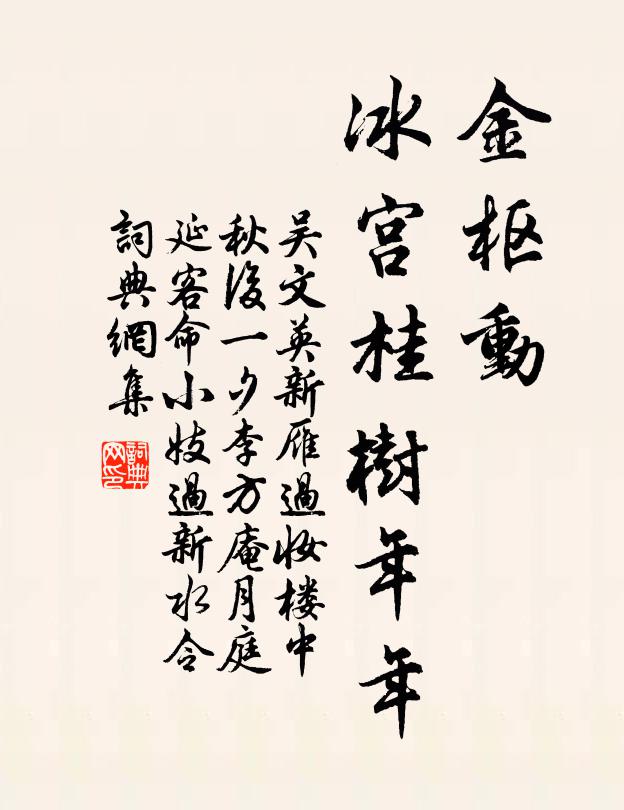 金枢動
冰宫桂樹年年
吴文英新雁過妆楼中
秋後一夕李方庵月庭
延客命小妓過新水令
詞典網集
詞典网印